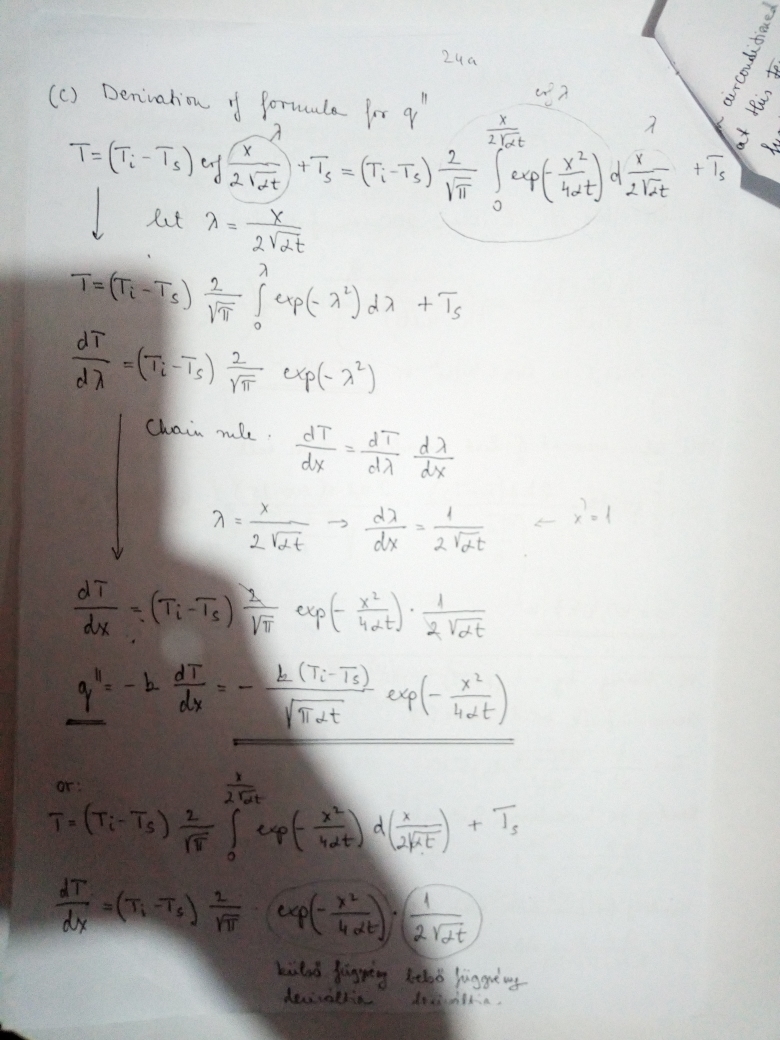 24a
(c) Derivation of formula for q"
erf λ
λ
T = (Ti − Ts) erf x/(2√αt) + Ts = (Ti − Ts) 2/√π ∫₀^(x/(2√αt)) exp(−x²/(4αt)) d x/(2√αt) + Ts
λ
let λ = x/(2√αt)
T = (Ti − Ts) 2/√π ∫₀^λ exp(−λ²) dλ + Ts
dT/dλ = (Ti − Ts) 2/√π exp(−λ²)
Chain rule: dT/dx = dT/dλ dλ/dx
λ = x/(2√αt) → dλ/dx = 1/(2√αt) ← x' = 1
dT/dx = (Ti − Ts) 2/√π exp(−x²/(4αt)) · 1/(2√αt)
q" = −k dT/dx = − k(Ti − Ts)/√(παt) exp(−x²/(4αt))
or:
T = (Ti − Ts) 2/√π ∫₀^(x/(2√αt)) exp(−x²/(4αt)) d(x/(2√αt)) + Ts
dT/dx = (Ti − Ts) 2/√π · exp(−x²/(4αt)) · 1/(2√αt)
külső függvény belső függvény
deriváltja deriváltja.
airconditioned
at this